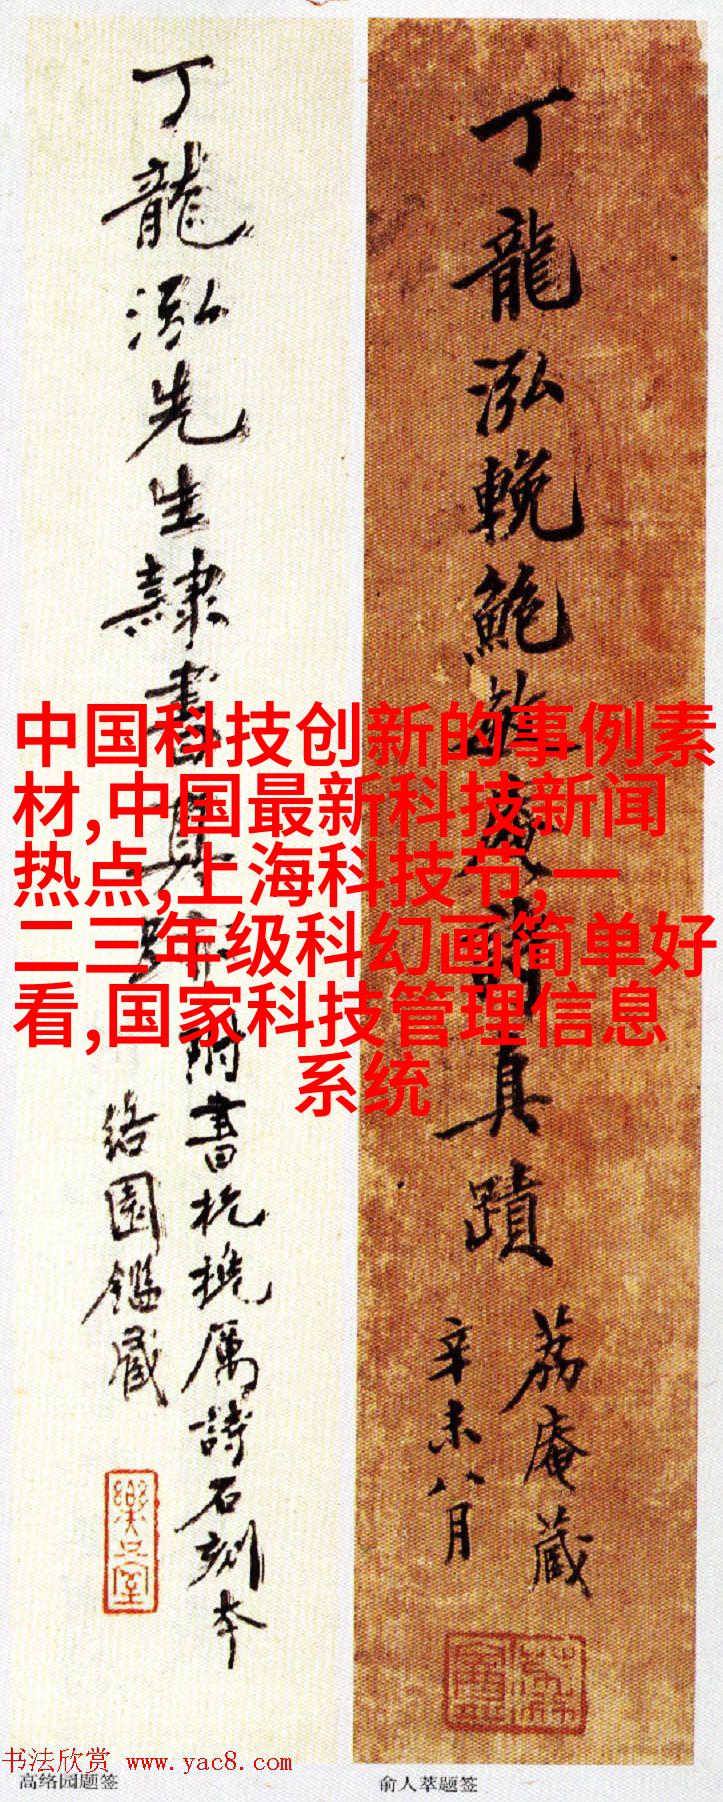 丁龍泓先生隸書真跡
附書杭撓厲詩石刻本
絡園鑑藏
丁龍泓輓鮑
庵
真蹟
荔庵藏
辛未八月
中国科技创新的事例素
材,中国最新科技新闻
热点,上海科技节,一
二三年级科幻画简单好
看,国家科技管理信息
系统
书法欣赏 www.yac8.com
高络园题签
俞人萃题签